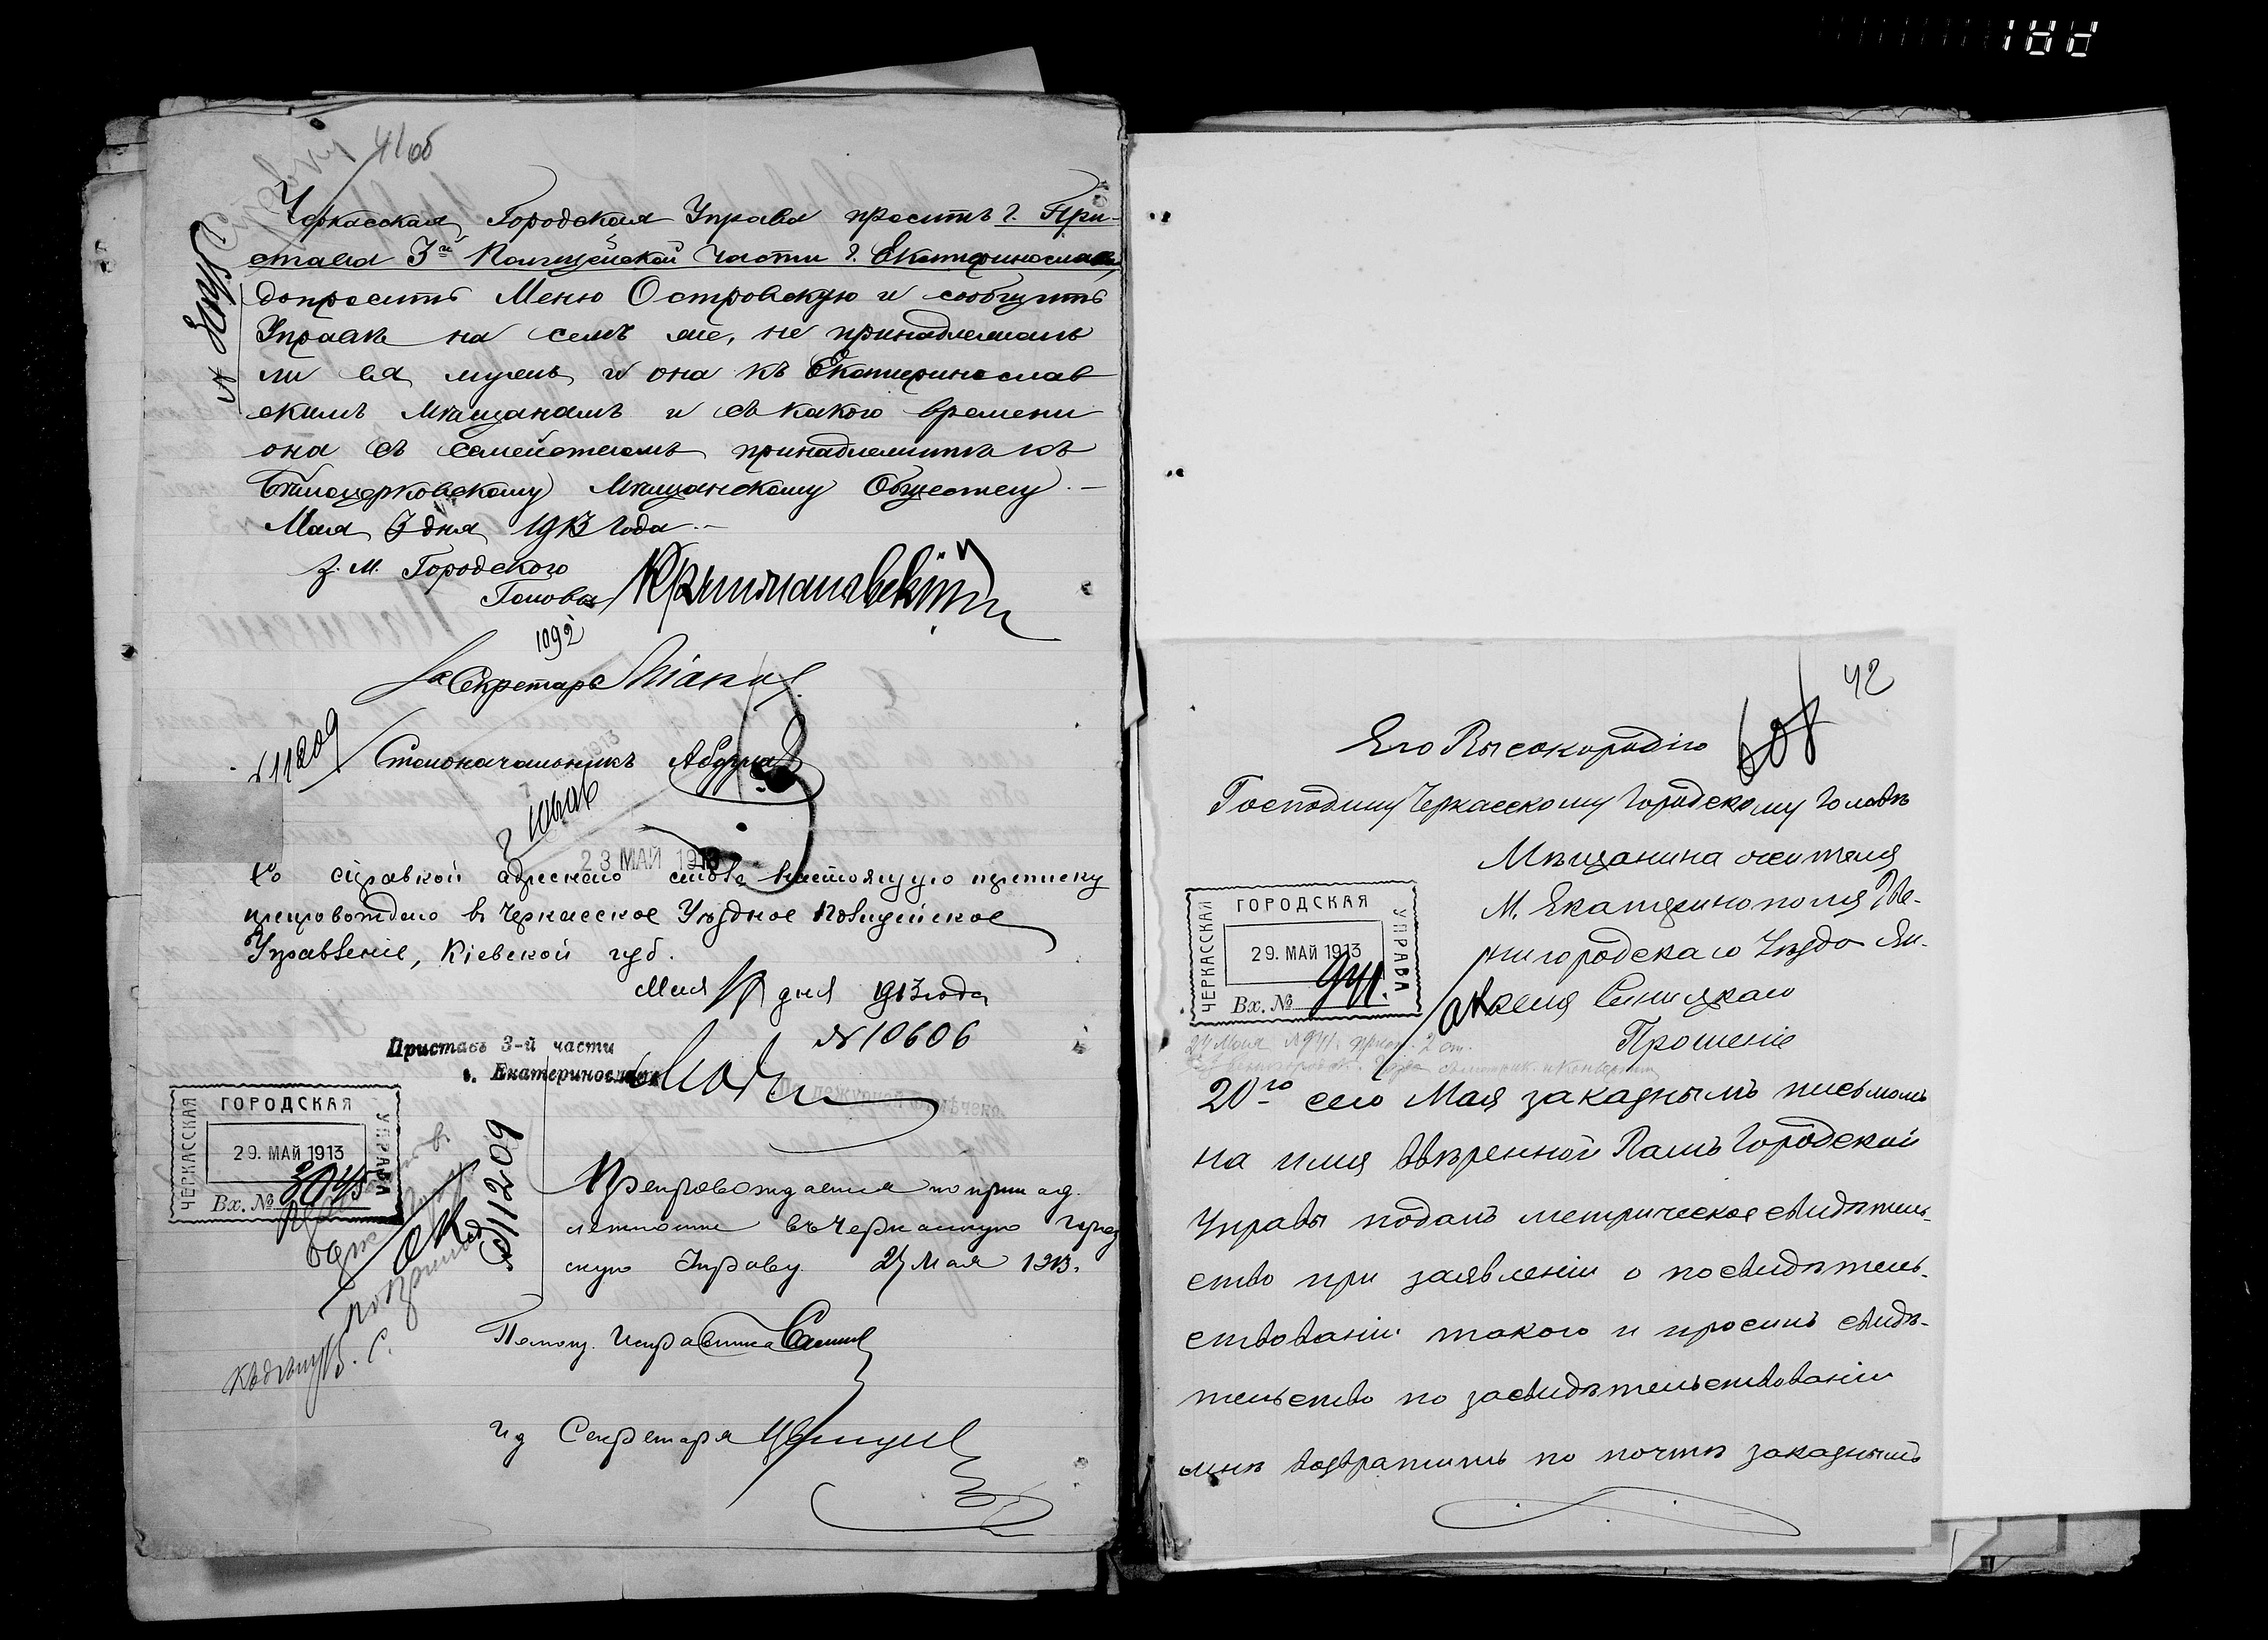 41 об
Черкасская Городская Управа проситъ г. При-
става 3й Полицейской Части г. Екатеринослава,
допросить Меню Островскую и сообщить
Управѣ на семъ же, не принадлежалъ
ли ея мужъ и она къ Екатеринослав
скимъ Мѣщанамъ и съ какого времени
она съ Семействомъ принадлежитъ къ
Бѣлоцерковскому Мѣщанскому Обществу.—
Мая 3 дня 1913 года.—
З. м. Городского
Головы
1092
За Секретаря
№ 11209
Столоначальникъ
23 МАЙ 1913
Со справкой адреснаго стола настоящую переписку
препровождаю въ Черкасское Уѣздное Полицейское
Управленіе, Кіевской губ.
Мая дня 1913 года
№ 10606
Приставъ 3-й части
г. Екатеринослава
ЧЕРКАССКАЯ ГОРОДСКАЯ УПРАВА
29. МАЙ 1913
Вх. № 3045
№ 11209
Препровождается по принад
лежности въ Черкасскую Город
скую Управу. 27 Мая 1913.
Помощ. Исправника
И д Секретаря
42
608
Его Высокородію
Господину Черкасскому Городскому Головѣ
Мѣщанина жителя
М. Екатеринополя Зве-
нигородскаго Уѣзда Ян-
келя Синицкаго
Прошеніе
ЧЕРКАССКАЯ ГОРОДСКАЯ УПРАВА
29. МАЙ 1913
Вх. № 941.
20го сего Мая заказнымъ письмомъ
на имя ввѣренной Вамъ Городской
Управы подалъ метрическое свидѣтель-
ство при заявленіи о посвидѣтель-
ствованіи такого и просилъ свидѣ-
тельство по засвидѣтельствованіи
мнѣ возвратить по почтѣ заказнымъ